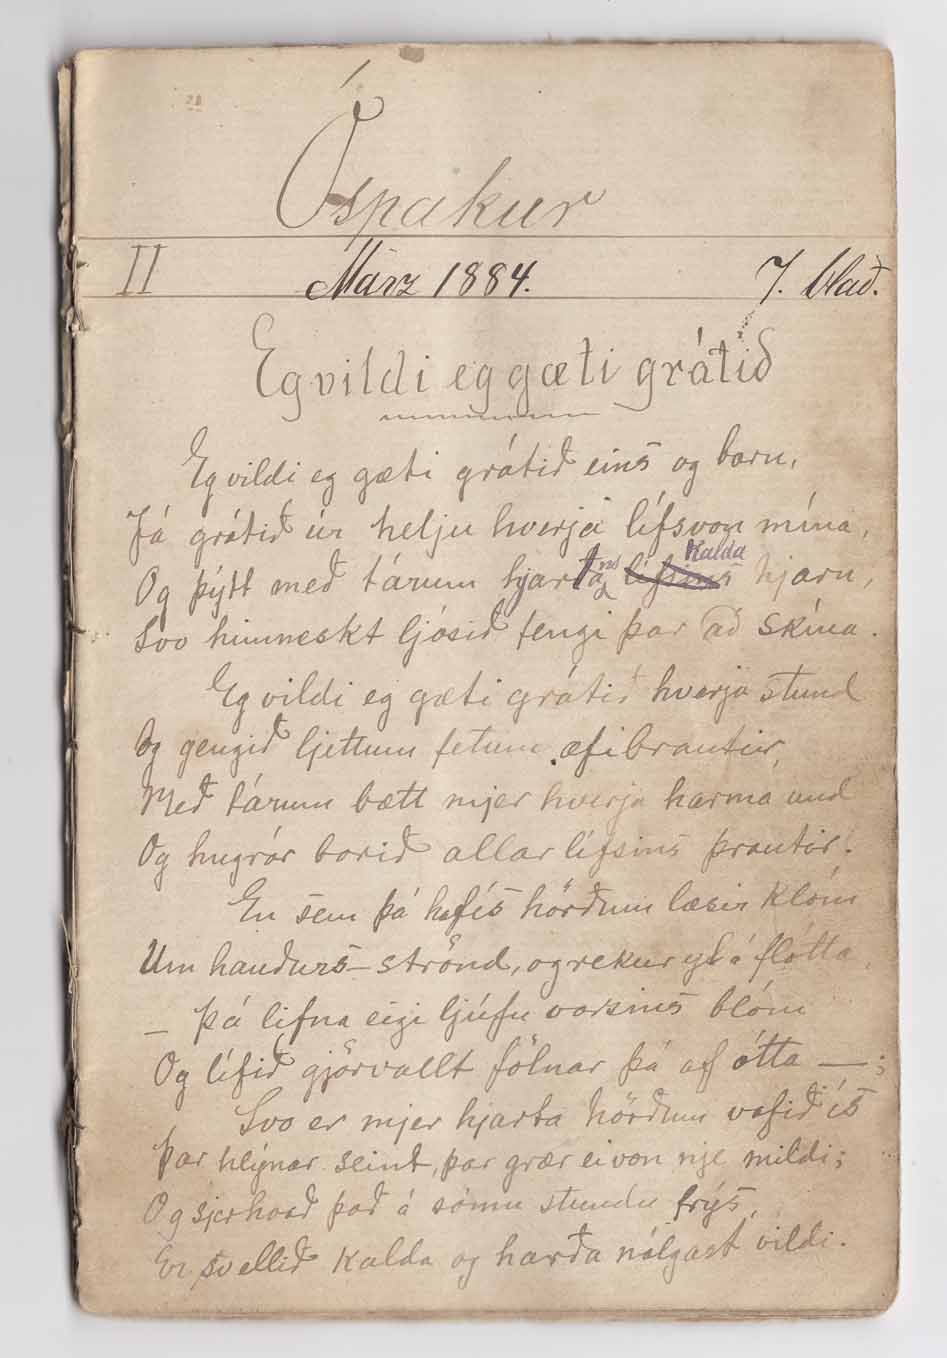 Óspakur
II März 1884. 7. blað.
Eg vildi eg gæti grátið
Eg vildi eg gæti grátið eins og barn,
Já grátið úr helju hverja lífsvon mína,
Kalda
Og þýtt með tárum hjarta lífsins hjarn,
Svo himneskt ljósið fengi þar að skína.
Eg vildi eg gæti grátið hverja stund
Og gengið ljettum fetum æfibrautir,
Með tárum bætt mjer hverja harma und
Og hugrór borið allar lífsins þrautir.
En sem þá hafís hörðum læsir klóm
Um hauðurs-strönd, og rekur yl á flótta,
– þá lifna eigi ljúfu vorsins blóm
Og lífið gjörvallt fölnar þá af ótta —;
Svo er mjer hjarta hörðum vafið ís
Þar hlýnar seint, þar grær ei von nje mildi;
Og sjerhvað það á sömu stundu frýs,
Er svellið kalda og harða nálgast vildi.